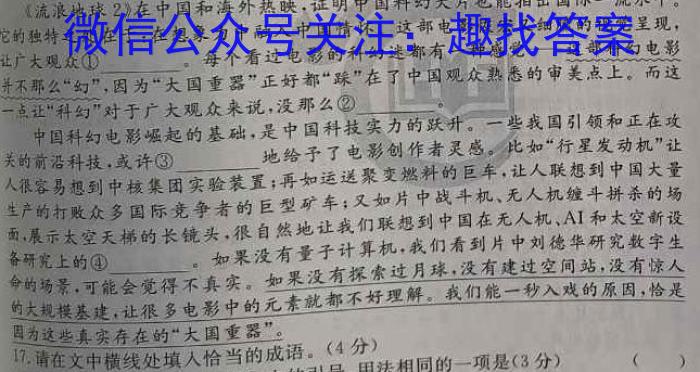 《流浪地球2》在中国和海外热映,证明中国科幻大片也能拍出国际一流水平。
它的独特
微信公众号关注:趣找答案
让广大观众① 。每个看过电影的科幻迷都有 电影
并不那么“幻”,因为“大国重器”正好都“踩”在了中国观众熟悉的审美点上。而这
一点让“科幻”对于广大观众来说,没那么② 。
中国科幻电影崛起的基础,是中国科技实力的跃升。一些我国引领和正在攻
关的前沿科技,或许③ 地给予了电影创作者灵感。比如“行星发动机”让
人很容易想到中核集团实验装置;再如运送聚变燃料的巨车,让人联想到中国大量
生产的打败众多国际竞争者的巨型矿车;又如片中战斗机、无人机缠斗拼杀的场
面,展示太空天梯的长镜头,很自然地让我们联想到中国在无人机、AI和太空新设
备研究上的④ 。如果没有量子计算机,我们看到片中刘德华研究数字生
命的场景,可能会觉得不真实。如果没有探索过月球,没有建过空间站,没有惊人
的大规模基建,让很多电影中的元素就都不好理解。我们能一秒入戏的原因,恰是
因为这些真实存在的“大国重器”。
17.请在文中横线处填入恰当的成语。(4分)
的引号,用法相同的一项是(3分) ( )